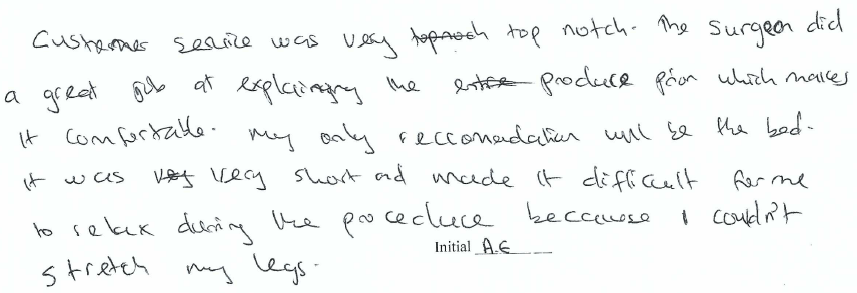 Customer service was very topnoch top notch. The surgeon did
a great job at explaining the entire produce prior which makes
it comfortable. My only reccomendation will be the bed.
it was vey very short and made it difficult for me
to relax during the procedure beccause I couldn't
stretch my legs.
Initial A.E